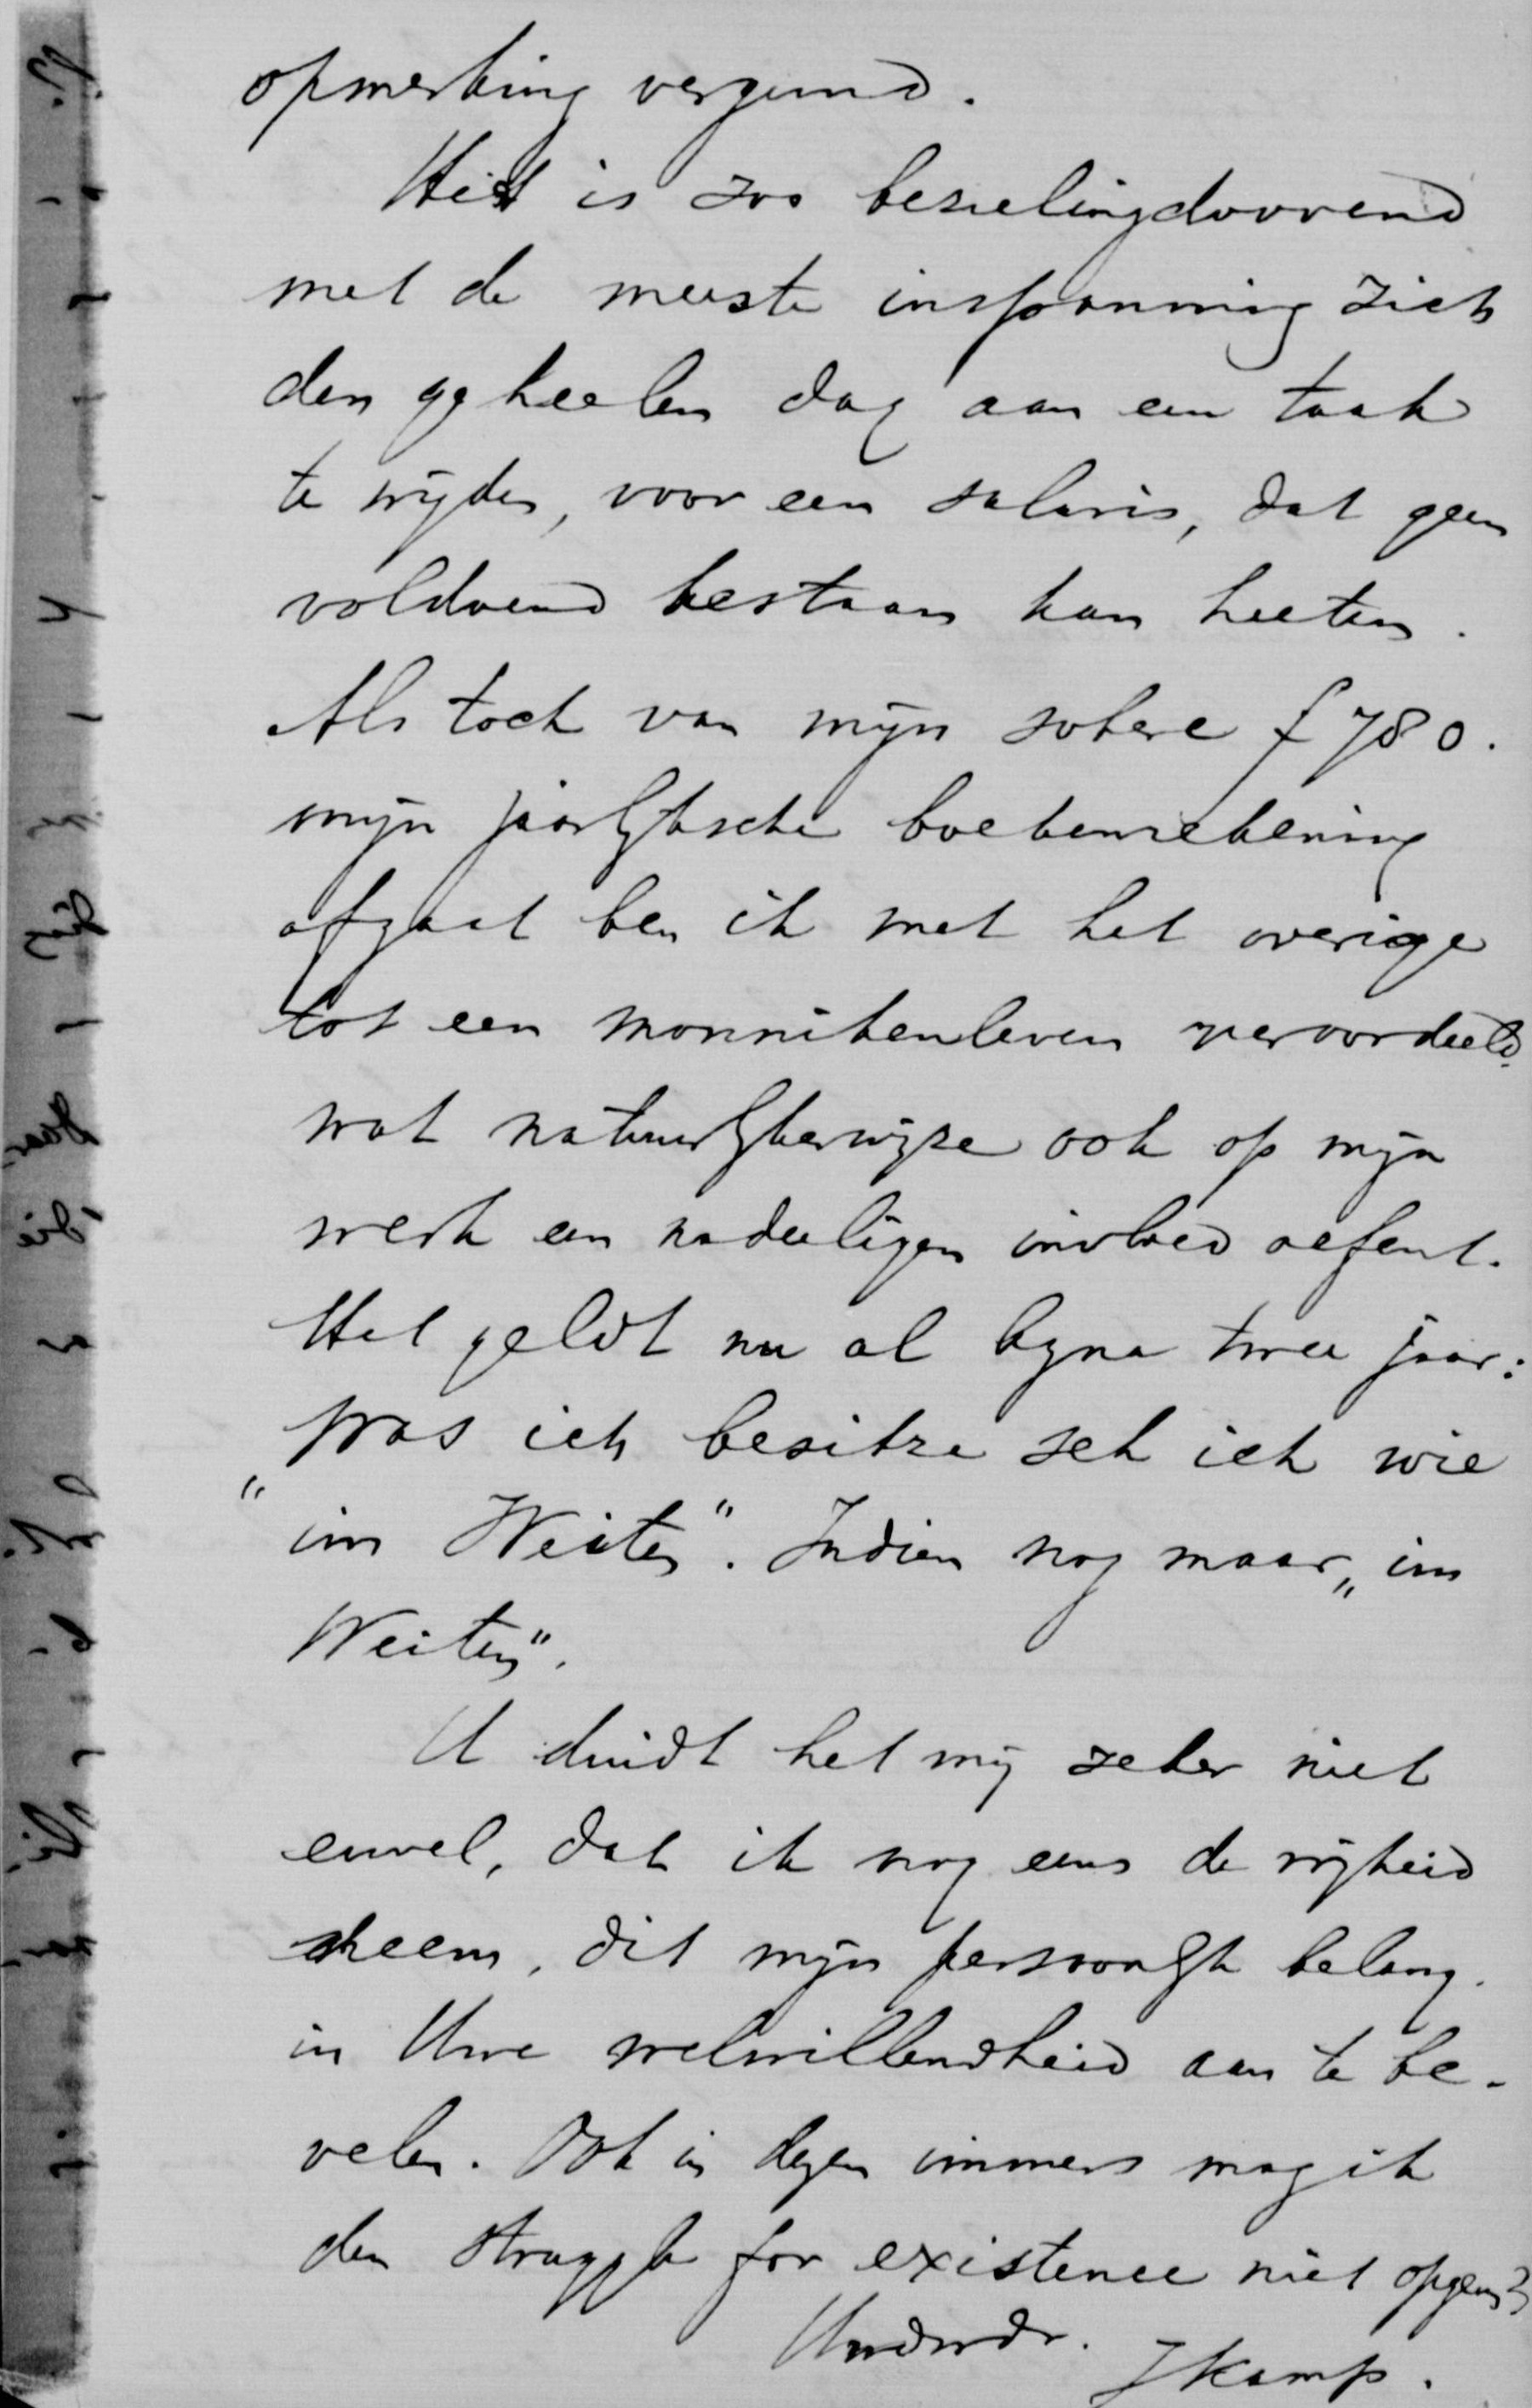 opmerking vergund.
Het is zoo bezielingdoovend
met de meeste inspanning zich
den geheelen dag aan een taak
te wijden, voor een salaris, dat geen
voldoend bestaan kan heeten.
Als toch van mijn sobere f 780.
mijn jaarlijksche boekenrekening
afgaat ben ik met het overige
tot een monnikenleven veroordeeld
wat natuurlijkerwijze ook op mijn
werk een nadeeligen invloed oefent.
Het geldt nu al bijna twee jaar:
Was ich besitze seh ich wie
„im Weiten". Indien nog maar „im
Weiten".
U duidt het mij zeker niet
euvel, dat ik nog eens de vrijheid
neem, dit mijn persoonlijk belang
in Uwe welwillendheid aan te be-
velen. Ook in dezen immers mag ik
den struggle for existence niet opgeven?
Uwdwdr.
JKamp.